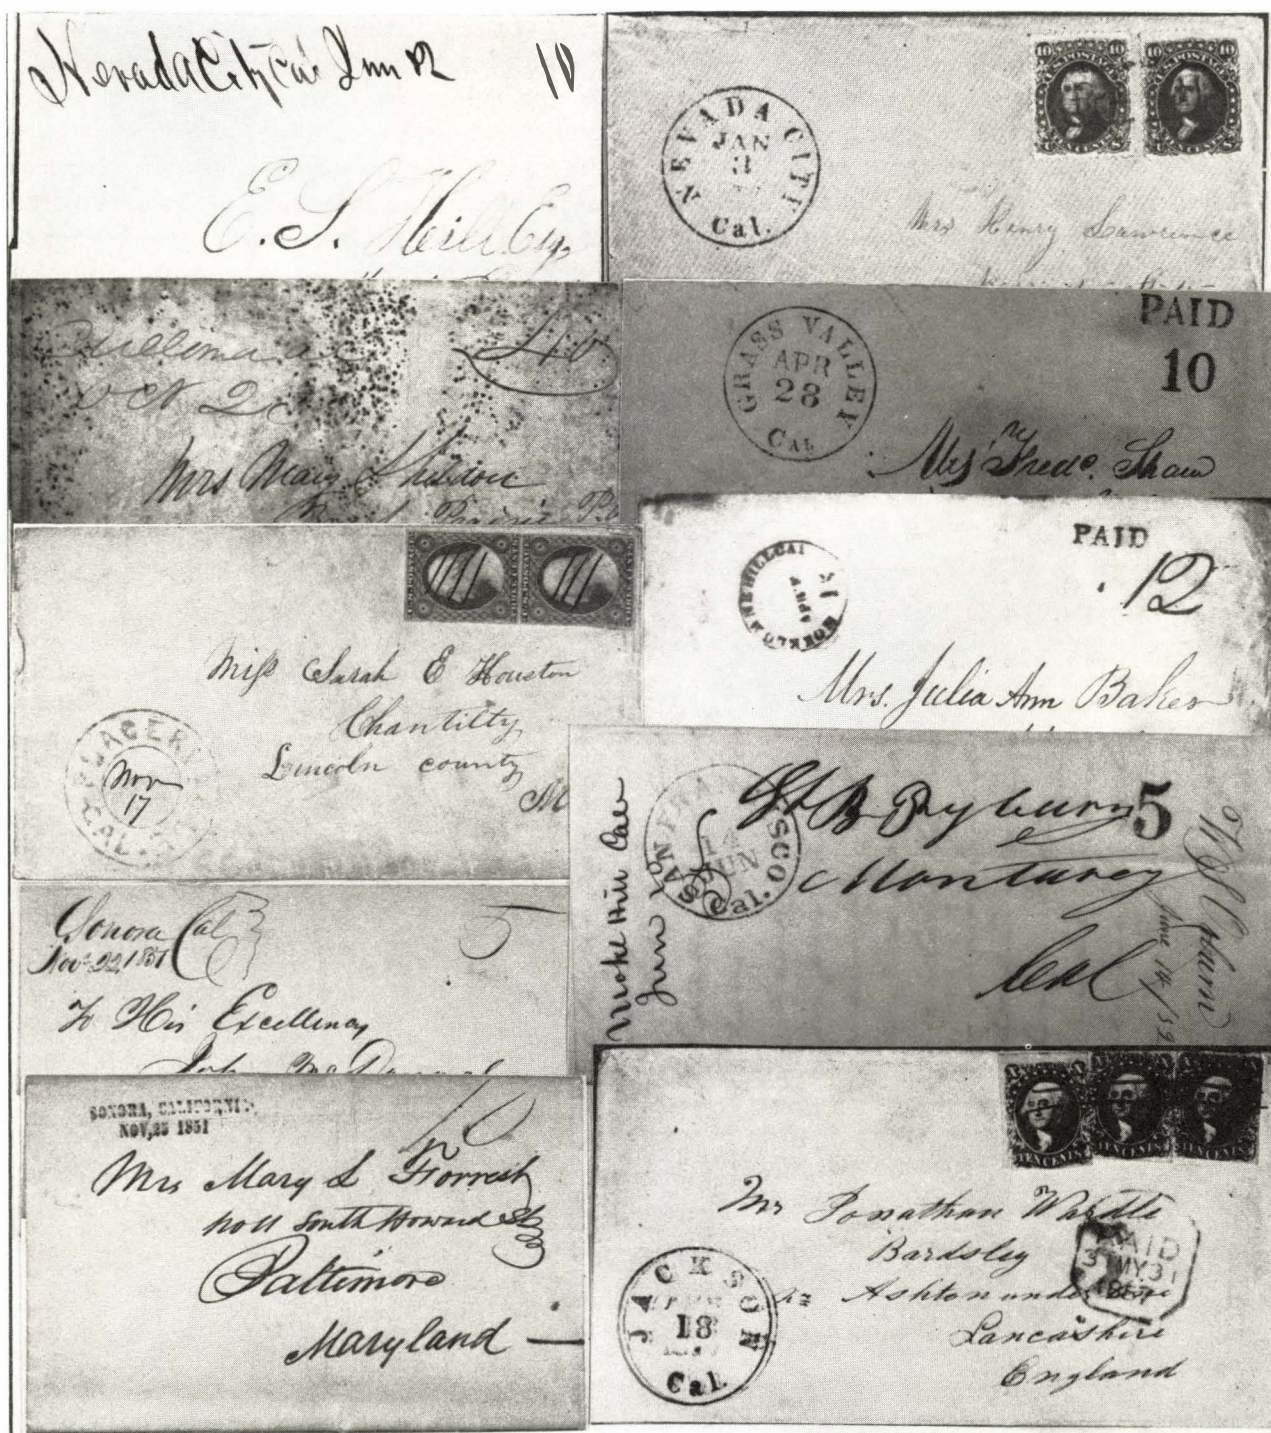 Nevada City Cal Jun 12
10
E. S. Hill Esq
NEVADA CITY
JAN
3
Cal.
10 U.S. POSTAGE 10
10 U.S. POSTAGE 10
Mrs Henry Lawrence
40
Oct 20
Mrs Mary Sheldon
Prairie
GRASS VALLEY
APR
28
CAL
PAID
10
Fredc. Shaw
Miss Sarah E Houston
Chantilly
Lincoln county
M
PLACERV
Nov
17
CAL
MOKELUMNE HILL CAL
APR
PAID
12
Mrs. Julia Ann Baker
Moke Hill Cal
Jun
SAN FRANCISCO
14
JUN
Cal.
5
Monterey
Cal
June 14/52
Sonora Cal
Nov 22, 1851
5
To His Excellency
John McDougal
SONORA, CALIFORNIA
NOV, 25 1851
10
Mrs Mary L Forrest
no 11 South Howard St
Baltimore
Maryland
TEN CENTS
TEN CENTS
TEN CENTS
Mr Jonathan Wardle
Bardsley
Ashton under
Lancashire
England
PAID
MY 31
JACKSON
18
Cal.